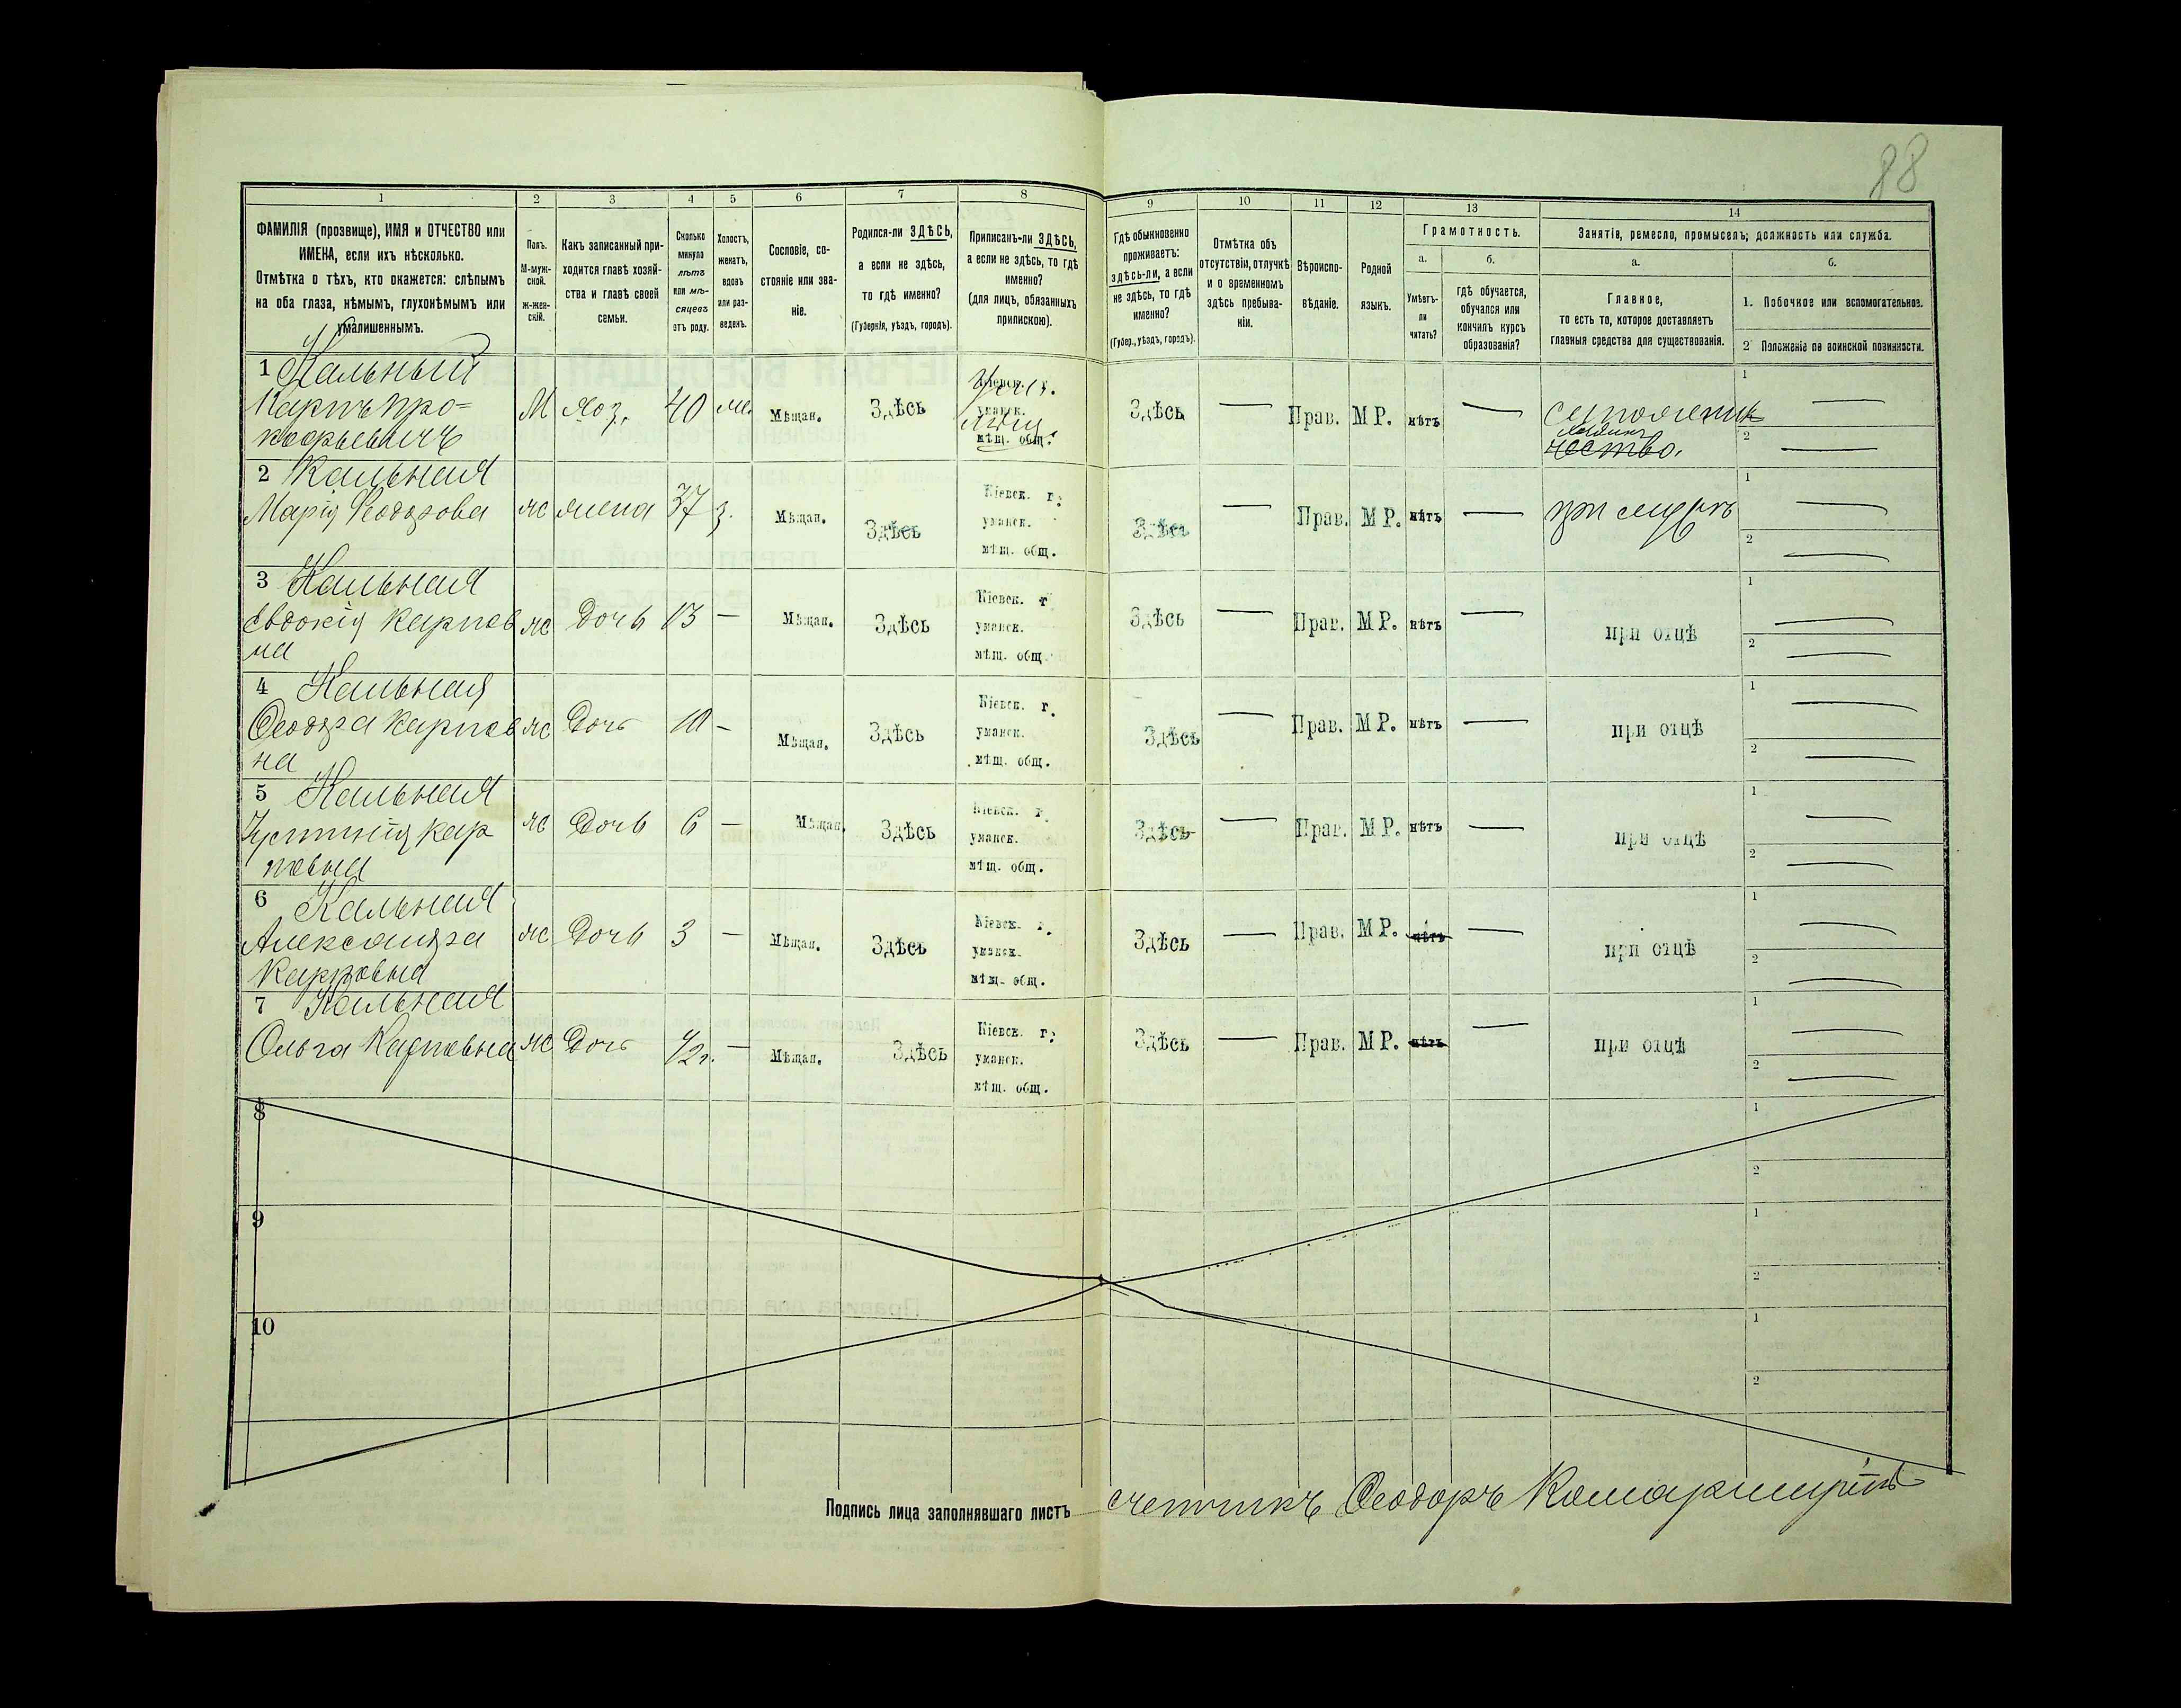 88
1 2 3 4 5 6 7 8 9 10 11 12 13 14
ФАМИЛІЯ (прозвище), ИМЯ и ОТЧЕСТВО или
ИМЕНА, если ихъ нѣсколько.
Отмѣтка о тѣхъ, кто окажется: слѣпымъ
на оба глаза, нѣмымъ, глухонѣмымъ или
умалишеннымъ.
Полъ.
М-муж-
ской.
ж-жен-
скій.
Какъ записанный при-
ходится главѣ хозяй-
ства и главѣ своей
семьи.
Сколько
минуло
лѣтъ
или мѣ-
сяцевъ
отъ роду.
Холостъ,
женатъ,
вдовъ
или раз-
веденъ.
Сословіе, со-
стояніе или зва-
ніе.
Родился-ли ЗДѢСЬ,
а если не здѣсь,
то гдѣ именно?
(Губернія, уѣздъ, городъ).
Приписанъ-ли ЗДѢСЬ,
а если не здѣсь, то гдѣ
именно?
(для лицъ, обязанныхъ
припискою).
Гдѣ обыкновенно
проживаетъ:
здѣсь-ли, а если
не здѣсь, то гдѣ
именно?
(Губер., уѣздъ, городъ).
Отмѣтка объ
отсутствіи, отлучкѣ
и о временномъ
здѣсь пребыва-
ніи.
Вѣроиспо-
вѣданіе.
Родной
языкъ.
Грамотность.
а.
Умѣетъ-
ли
читать?
б.
гдѣ обучается,
обучался или
кончилъ курсъ
образованія?
Занятіе, ремесло, промыселъ; должность или служба.
а.
Главное,
то есть то, которое доставляетъ
главныя средства для существованія.
б.
1. Побочное или вспомогательное.
2 Положеніе по воинской повинности.
1 Кальный
Карпъ Про=
кофьевичъ
М хоз. 40 Мѣщан. Здѣсь
Кіевск. г.
уманск.
мѣщ. общ.
Здѣсь — Прав. М Р. нѣтъ —
1 —
2 —
2 Кальная
Марія Феодорова
ж жена 37 з. Мѣщан. Здѣсь
Кіевск. г.
уманск.
мѣщ. общ.
Здѣсь — Прав. М Р. нѣтъ — при мужѣ
1 —
2 —
3 Кальная
Евдокія Карпов
на
ж Дочь 13 — Мѣщан. Здѣсь
Кіевск. г
уманск.
мѣщ. общ.
Здѣсь — Прав. М Р. нѣтъ — при отцѣ
1 —
2 —
4 Кальная
Феодора Карпов
на
ж Дочь 10 — Мѣщан. Здѣсь
Кіевск. г.
уманск.
мѣщ. общ.
Здѣсь — Прав. М Р. нѣтъ — при отцѣ
1 —
2 —
5 Кальная
Устинія Кар
повна
ж Дочь 6 — Мѣщан. Здѣсь
Кіевск. г.
уманск.
мѣщ. общ.
Здѣсь — Прав. М Р. нѣтъ — при отцѣ
1 —
2 —
6 Кальная
Александра
Карповна
ж Дочь 3 — Мѣщан. Здѣсь
Кіевск. г.
уманск.
мѣщ. общ.
Здѣсь — Прав. М Р. нѣтъ — при отцѣ
1 —
2 —
7 Кальная
Ольга Карповна
ж Дочь 1/2 г. — Мѣщан. Здѣсь
Кіевск. г.
уманск.
мѣщ. общ.
Здѣсь — Прав. М Р. нѣтъ — при отцѣ
1 —
2 —
8
1
2
9
1
2
10
1
2
Подпись лица заполнявшаго листъ счетчикъ Феодоръ